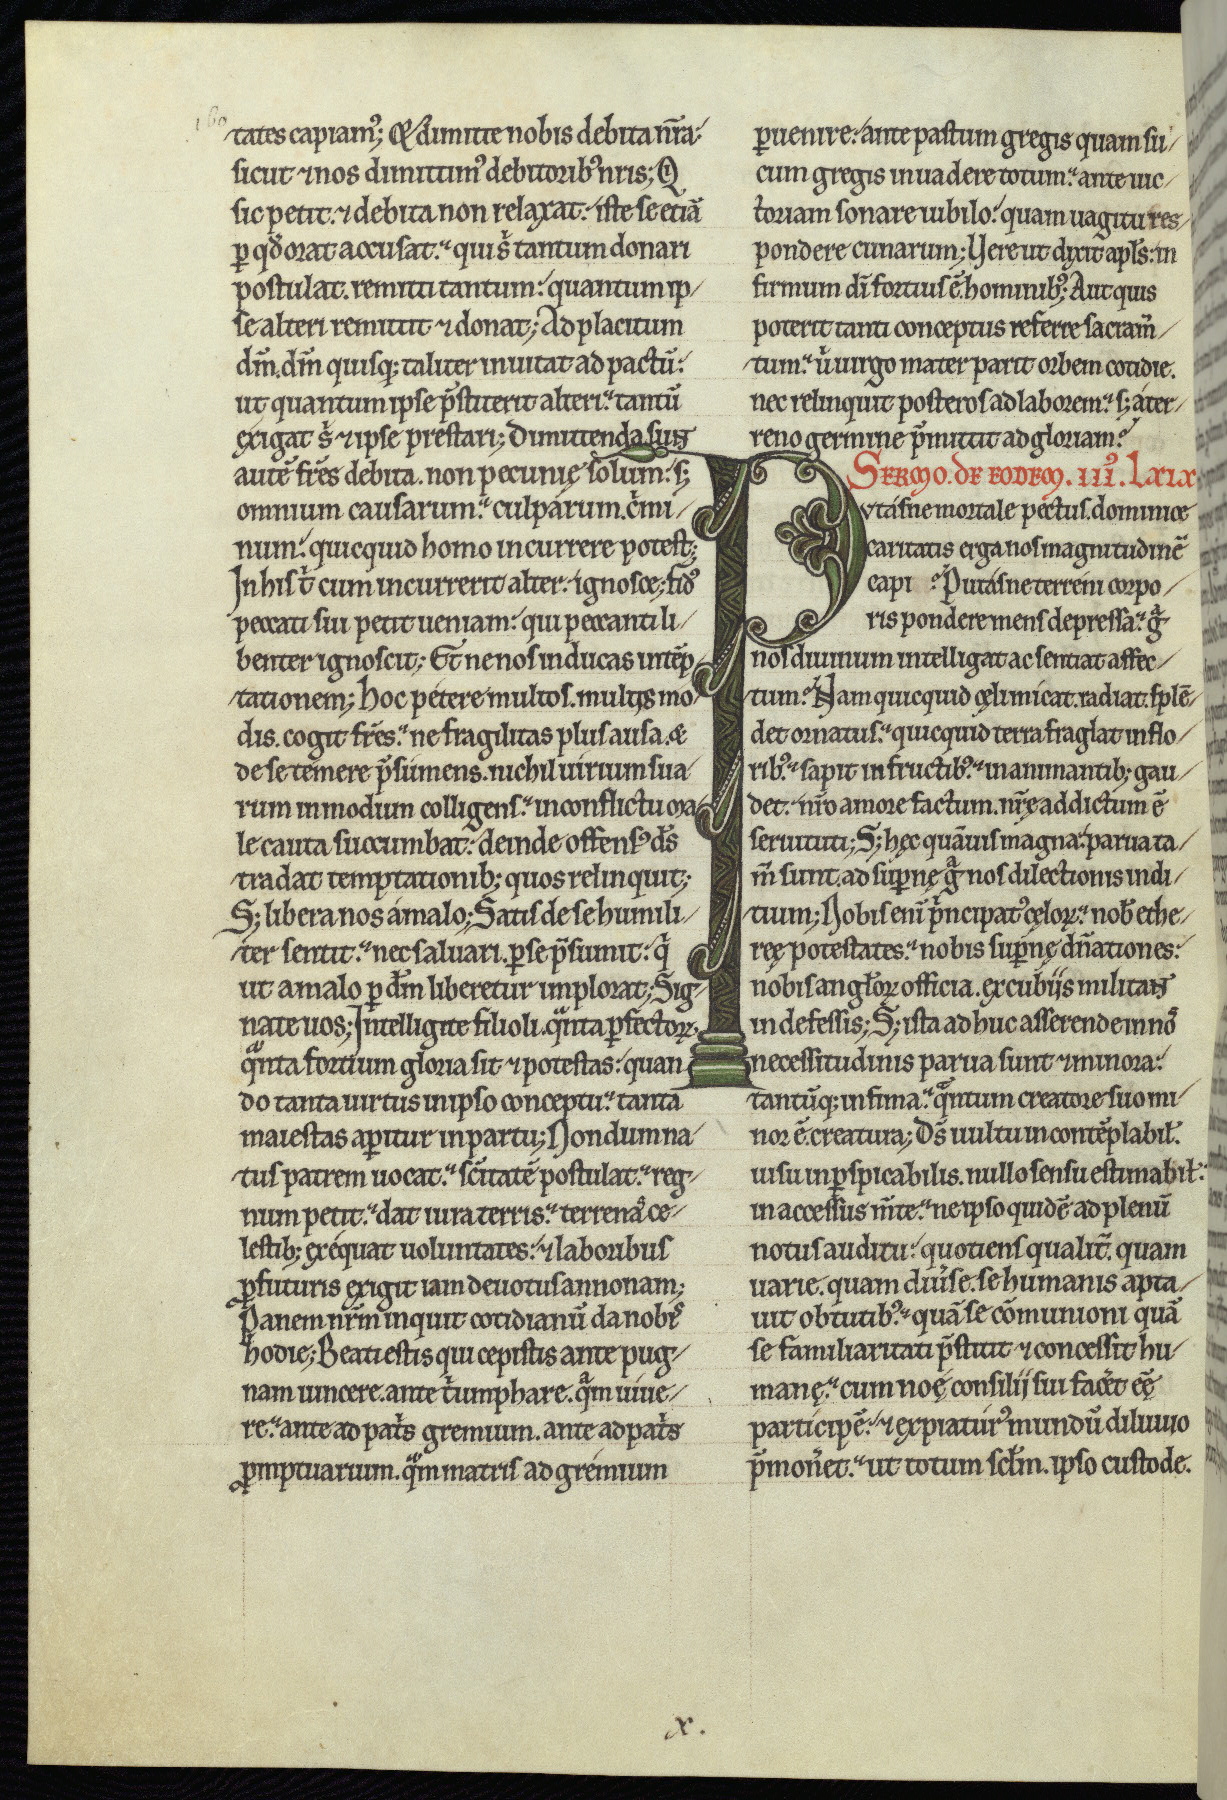 tates capiamꝰ; Et dimitte nobis debita nr̄a:
sicut ⁊ nos dimittimꝰ debitoribꝰ nris; Q
sic petit. ⁊ debita non relaxat: iste se etiā
ꝑ qđ orat accusat: qui s̓ tantum donari
postulat. remitti tantum: quantum ip/
se alteri remittit ⁊ donat; Ad placitum
dm̄. dm̄ quisq; taliter inuitat ad pactū:
ut quantum ipse p̄stiterit alteri: tantū
exigat s̓ ⁊ ipse prestari; Dimittenda sunt
autē fr̄es debita. non pecunię solum: s;
omnium causarum: culparum. c̓mi/
num: quicquid homo incurrere potest;
In his t̓ cum incurrerit alter: ignosce; fidꝰ
peccati sui petit ueniam: qui peccanti li/
benter ignoscit; Et ne nos inducas intēp/
tationem; hoc petere multos. multis mo/
dis. cogit fr̄es: ne fragilitas plus ausa. &
de se temere p̄sumens. nichil uirium sua
rum in modum colligens: in conflictu ma/
le cauta succumbat: deinde offensꝰ ds̄
tradat temptationib; quos relinquit;
S; libera nos a malo; Satis de se humili/
ter sentit: nec saluari. ꝑ se p̄sumit: q̓
ut a malo ꝑ dm̄ liberetur implorat; Sig/
nate uos; Intelligite filioli. qᵃnta ꝑfectoꝝ.
qᵃnta fortium gloria sit ⁊ potestas: quan
do tanta uirtus in ipso conceptu: tanta
maiestas aꝑitur in partu; Nondum na/
tus patrem uocat: sc̄itatē postulat: reg/
num petit: dat iura terris: terrena ce/
lestib; exequat uoluntates: ⁊ laboribus
ꝓfuturis exigit iam deuotus annonam;
Panem nr̄m inquit cotidianū da nobis
hodie; Beati estis qui cepistis ante pug/
nam uincere. ante t̓umphare. qᵃm uiue/
re: ante ad pat̓s gremium. ante ad pat̓s
ꝓmptuarium. qᵃm matris ad gremium
ꝑuenire: ante pastum gregis quam su/
cum gregis inuadere totum: ante uic/
toriam sonare iubilo: quam uagitu res/
pondere cunarum; Vere ut dixit apl̄s: in
firmum di fortius ē hominibꝰ; Aut quis
poterit tanti conceptus referre sacram̄/
tum: u̓ uirgo mater parit orbem cotidie.
nec relinquit posteros ad laborem: s; a ter/
reno germine p̄mittit ad gloriam:
Sermo. de eodem. iii. lxix
Putasne mortale pectus. dominice
caritatis erga nos magnitudinē
capi ? Putasne terreni corpo/
ris pondere mens depressa: gᵃ
nos diuinum intelligat ac sentiat affec/
tum? Nam quicquid cęli micat. radiat. splē/
det ornatus: quicquid terra fraglat in flo/
ribꝰ: sapit in fructibꝰ: in animantib; gau/
det: nr̄o amore factum. nr̄ę addictum ē
seruituti; S; hęc quāuis magna: parua ta/
m̄ sunt. ad suꝑnę gᵃ nos dilectionis indi/
tium; Nobis eni p̓ncipatꝰ cęloꝝ: nob ethe/
reę potestates: nobis suꝑnę dn̄ationes:
nobis angl̓oꝝ officia. excubijs militant
indefessis; S; ista ad huc asserende in nos
necessitudinis parua sunt ⁊ minora:
tantūq; infima: qᵃntum creatore suo mi/
nor ē creatura; Ds̄ uultu incontēplabil̓.
uisu inꝑspicabilis. nullo sensu estimabil̓:
inaccessus m̄te: ne ipso quidē ad plenū
notus auditu: quotiens qualit̓. quam
uarie. quam diu̓se. se humanis apta/
uit obtutibꝰ: quā se cōmunioni quā
se familiaritati p̄stitit ⁊ concessit hu/
manę: cum noę consilij sui fac̓et eē
participē: ⁊ expiaturꝰ mundū diluuio
p̄mon̓et: ut totum scl̄m. ipso custode.
x.